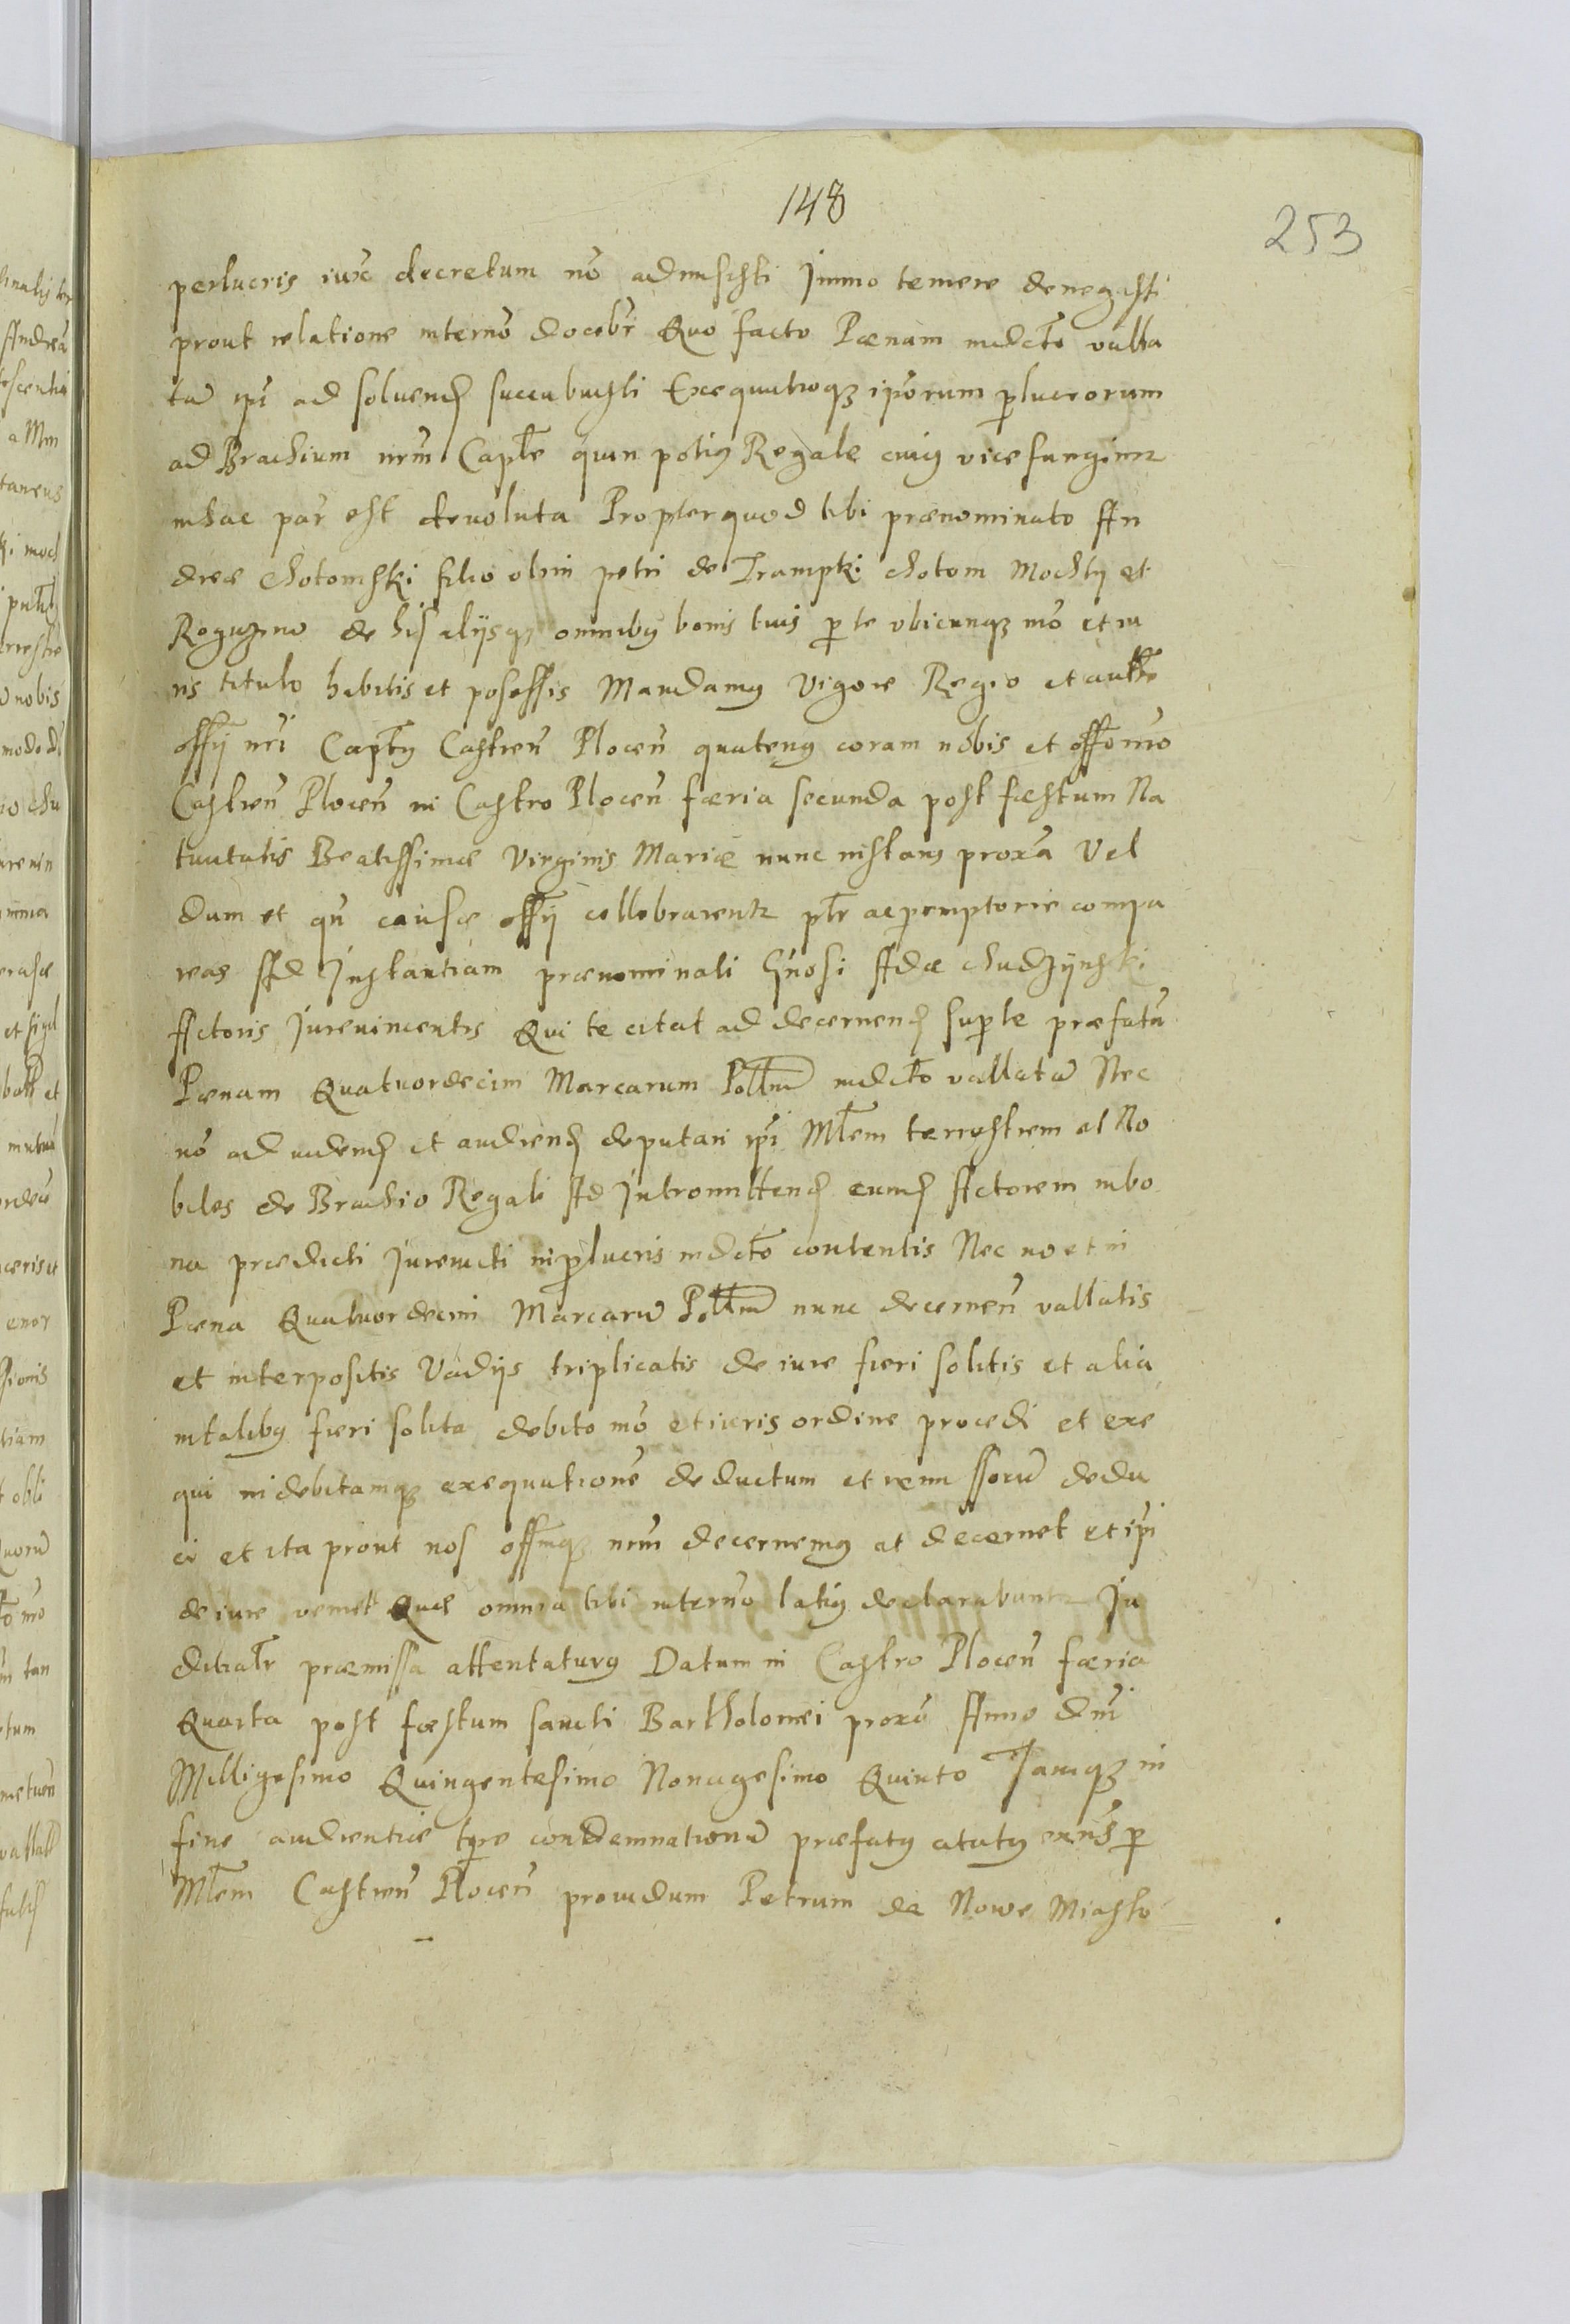 148
253
perlucris iuxᷓ decretum nō admisisti Immo temere denegasti
prout relatione internō docebr̄ Quo facto Pœnam indctō valla
tā ip̄i ad soluend succubuisti Exequutioqʒ ip̄orum perlucrorum
ad Brachium nr̄m Capt̄le quin potius Regale cuius vice fungimur
inhac par̄ est deuoluta Propterquod tibi prænominato An
dreæ chotomski filio olim petri de Trampki chotom Mochty et
Roguzno de his alijsqʒ omnibus bonis tuis per te vbicunqʒ mō et iu
ris titulo habitis et posessis Mandamus Vigore Regio et autt̄e
offij nr̄i Capt̄lis Castren̄ Plocen̄ quatenus coram nobis et offō nr̄o
Castren̄ Plocen̄ in Castro Plocen̄ færia secunda post fæstum Na
tiuitatis Beatissimæ Virginis Mariæ nunc instans proxᷓa Vel
dum et qn̄ causæ offij cellebrarentur pt̄r ac peremptorie compa
reas Ad Instantiam prænominati Gn̄osi Adæ chudzijnski
Actoris Iureuincentis Qui te citat ad decernend superte præfatā
Pœnam Quatuordecim Marcarum Pollm̄ indictō vallatā Nec
nō ad uidend et audiend deputari ip̄i Mt̄lem terrestrem et No
biles de Brachio Regali Ad Intromittend eumd Actorem inbo
na prædicti Iureuicti inperlucris indctō contentis Nec no et in
Pœna Quatuordecim Marcarū Pollm̄ nunc decernen̄ vallatis
et interpositis Vadijs triplicatis de iure fieri solitis et alia
intalibus fieri solita debito mō et iuris ordine procedi et exe
qui indebitamqʒ exequutionē deductum et remissorū dedu
ci et ita prout nos offmqʒ nr̄m decernemus at decernet et ip̄i
de iure veniet Quæ omnia tibi internō latius declarabuntur Iu
ditiatr̄ præmissa attentaturus Datum in Castro Plocen̄ færia
Quarta post fæstum sancti Bartholomei proxō Anno Dn̄i
Milligesimo Quingentesimo Nonagesimo Quinto Iamqʒ in
fine audientiæ tp̄re condemnationū præfatus citatus exn̄s per
Mt̄lem Castren̄ Plocen̄ prouidum Petrum de Nowe Miasto